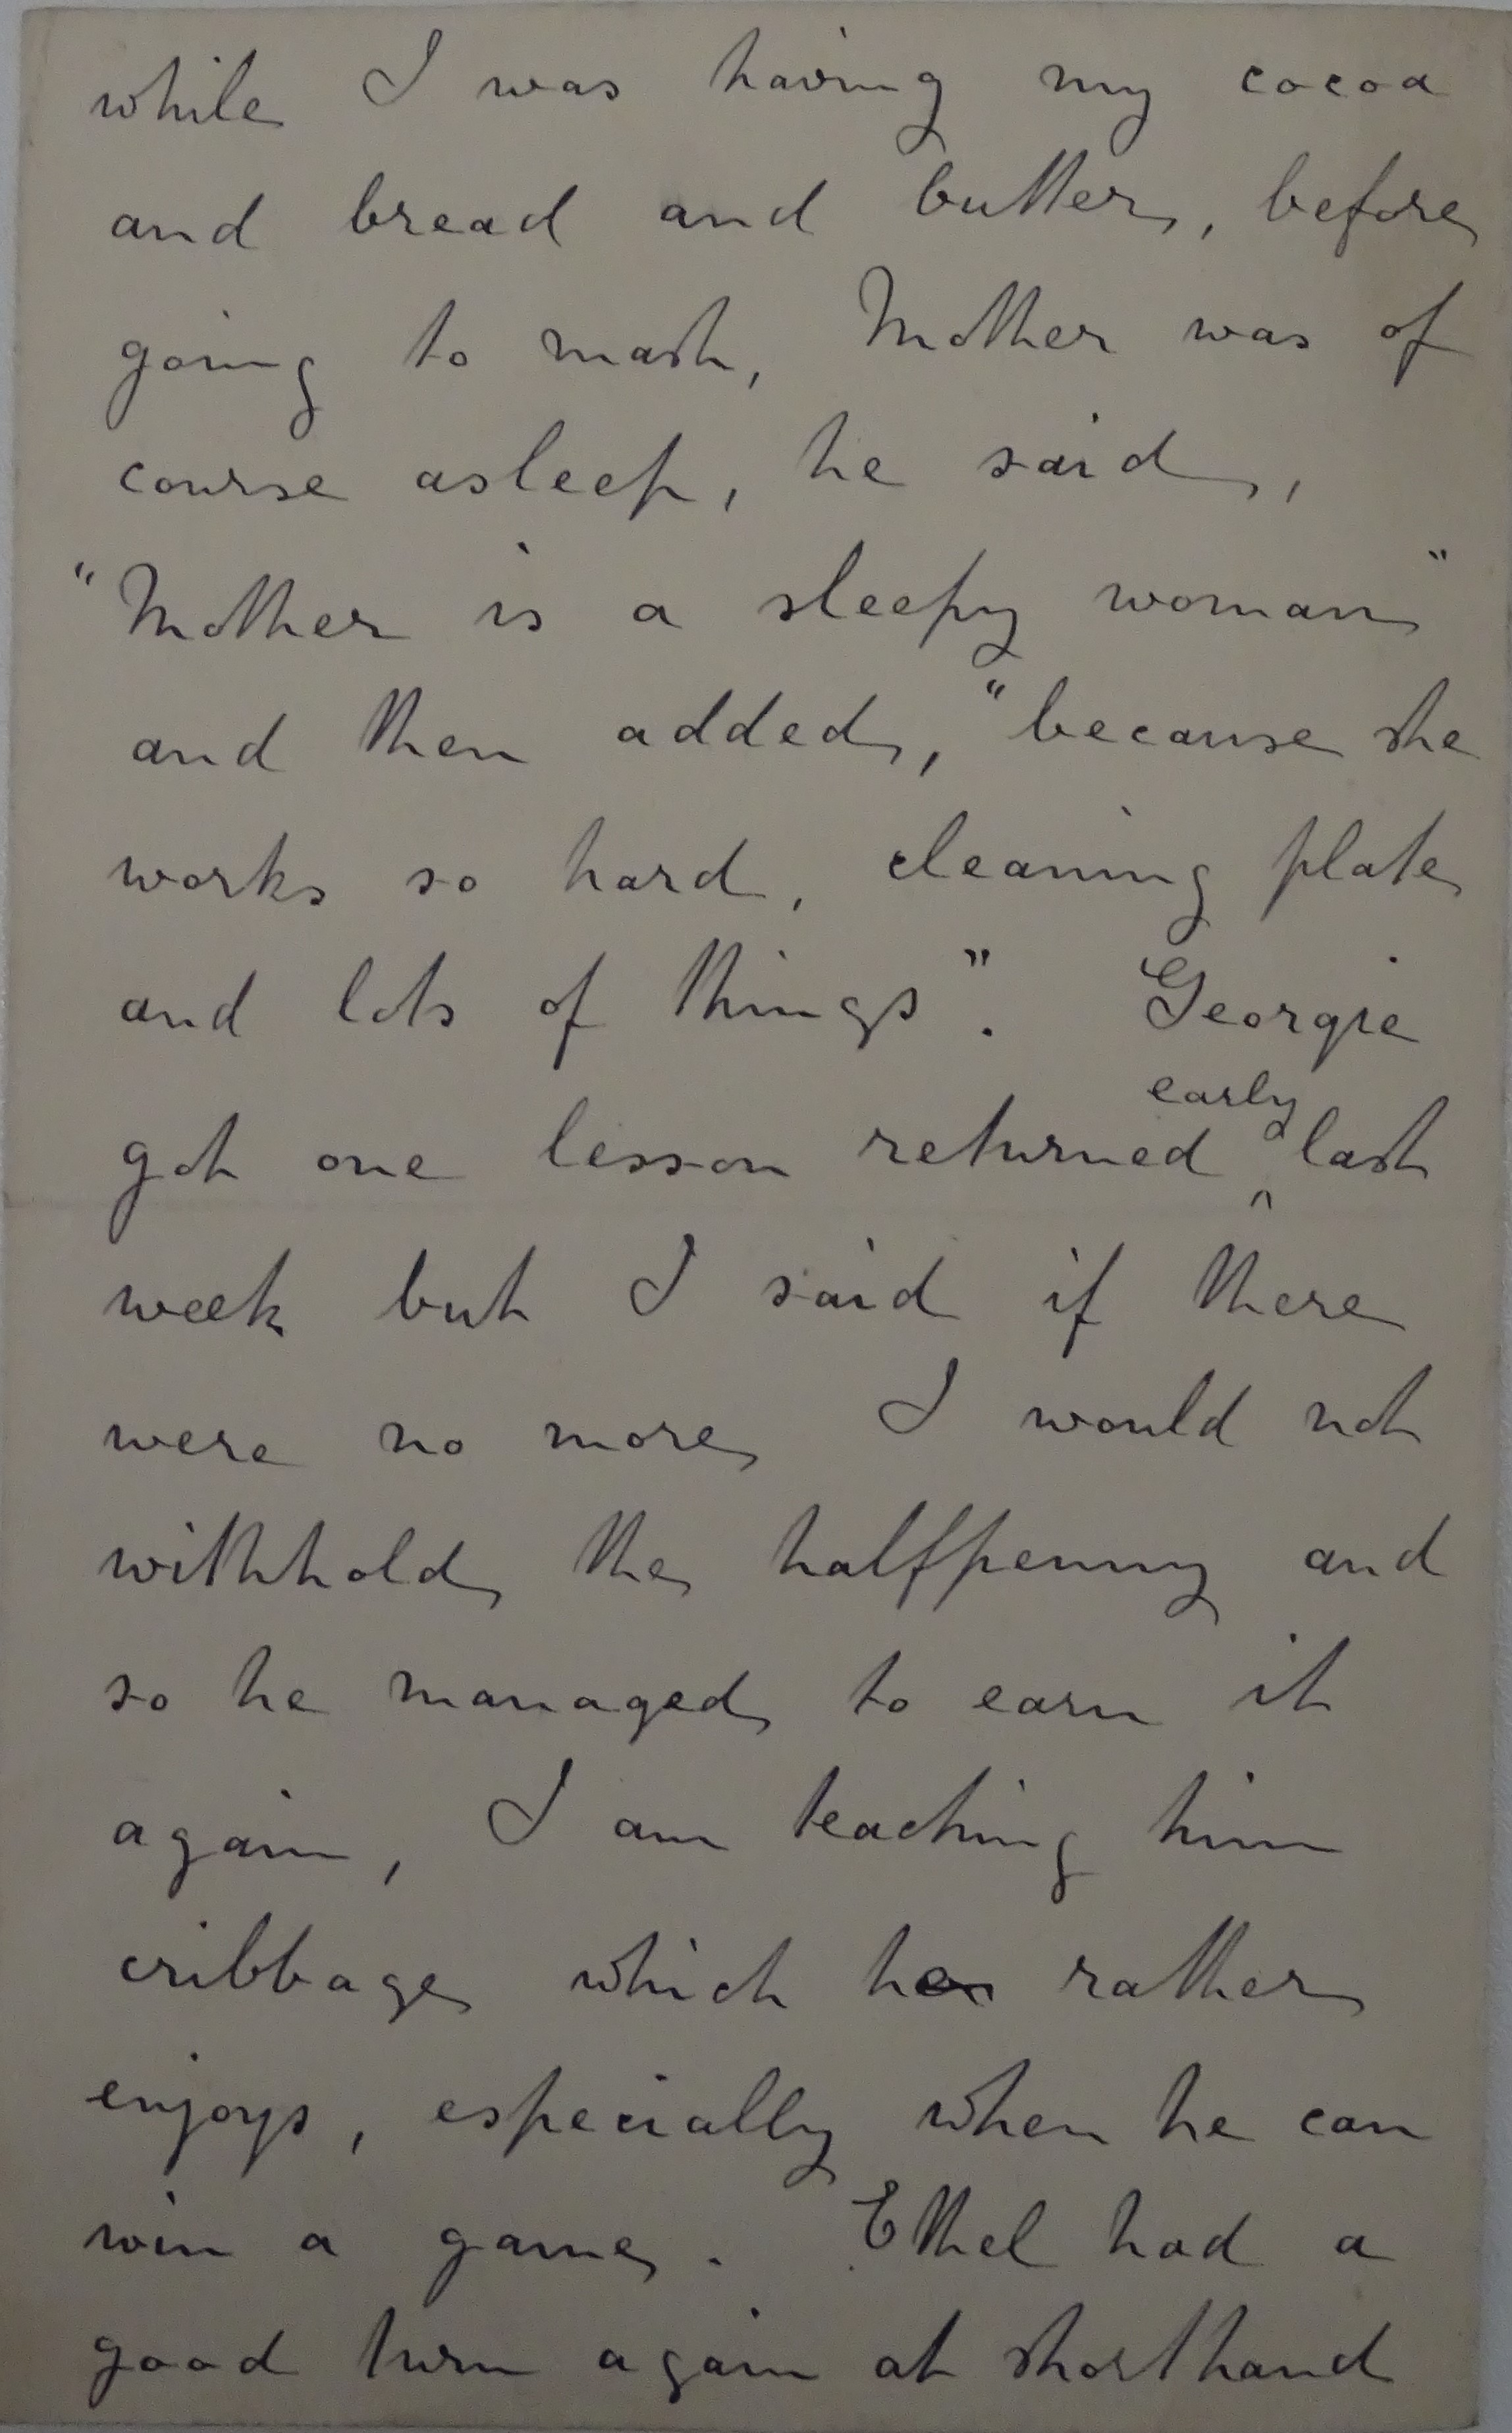 while I was having my cocoa
and bread and butter, before
going to mash, Mother was of
course asleep, he said,
"Mother is a sleepy woman"
and then added, "because she
works so hard, cleaning plate
and lots of things". Georgie
got one lesson returned early last
week but I said if there
were no more I would not
withhold the halfpenny and
so he managed to earn it
again, I am teaching him
cribbage which he rather
enjoys, especially when he can
win a game. Ethel had a
good turn again at shorthand